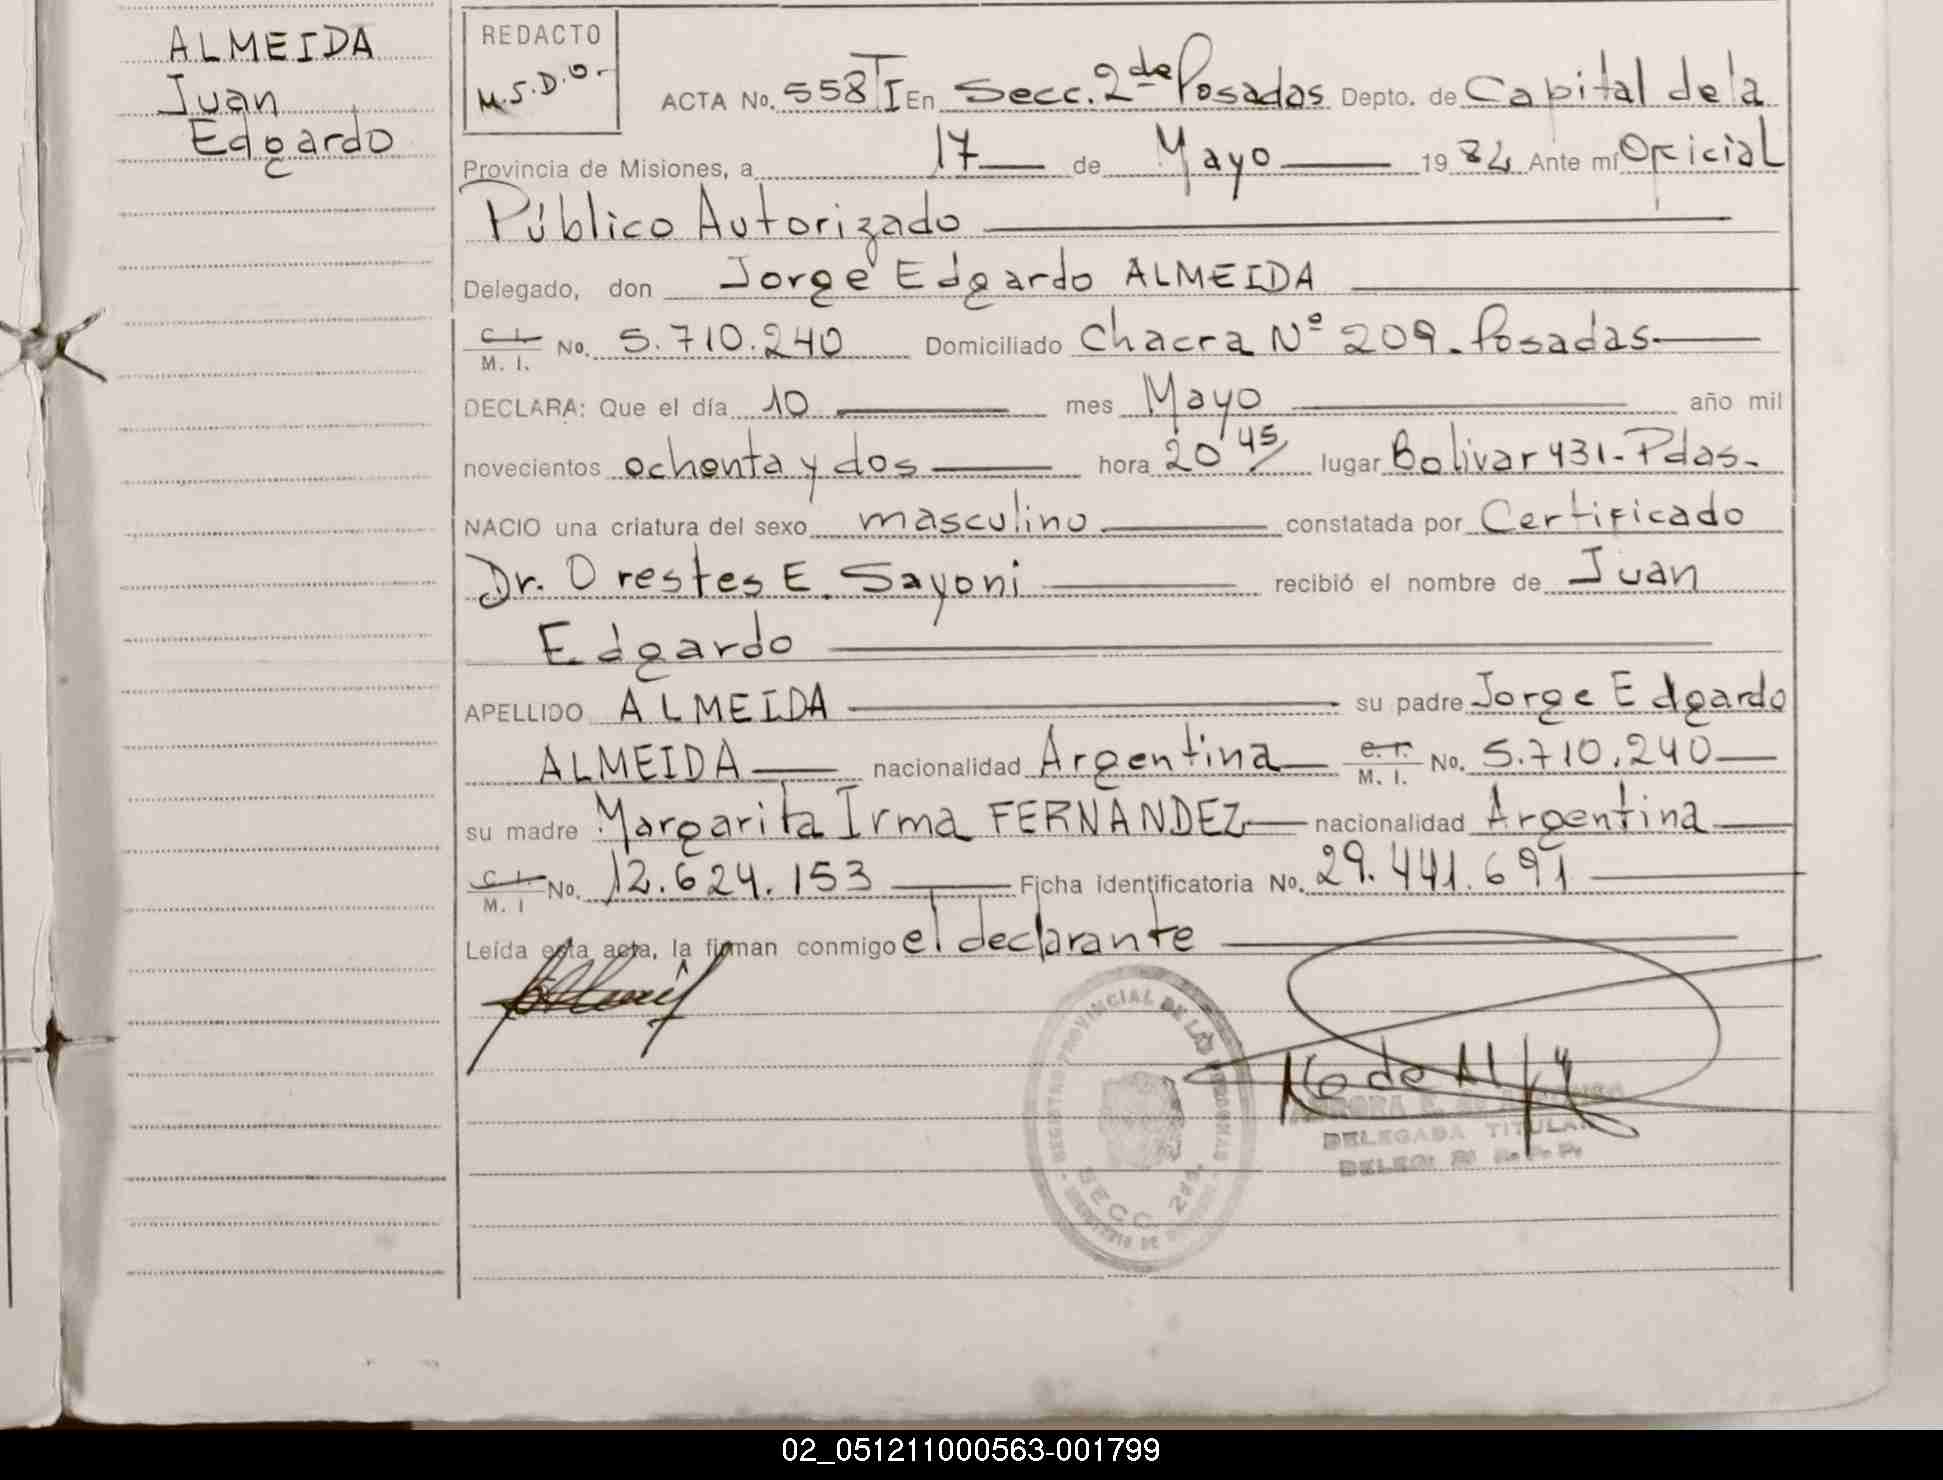 ALMEIDA
Juan
Edgardo
REDACTO
M.S.D.O.-
ACTA No. 558 TI En Secc. 2da Posadas Depto. de Capital de la
Provincia de Misiones, a 17 de Mayo 1982 Ante mí Oficial
Público Autorizado
Delegado, don Jorge Edgardo ALMEIDA
C. I. M. I. No. 5.710.240 Domiciliado Chacra Nº 209 - Posadas
DECLARA: Que el día 10 mes Mayo año mil
novecientos ochenta y dos hora 20 45 lugar Bolivar 431 - Pdas -
NACIO una criatura del sexo masculino constatada por Certificado
Dr. Orestes E. Sayoni recibió el nombre de Juan
Edgardo
APELLIDO ALMEIDA su padre Jorge Edgardo
ALMEIDA nacionalidad Argentina C. I. M. I. No. 5.710.240
su madre Margarita Irma FERNANDEZ nacionalidad Argentina
C. I. M. I No. 12.624.153 Ficha identificatoria No. 29.441.691
Leída esta acta, la firman conmigo el declarante
REGISTRO PROVINCIAL DE LAS PERSONAS
SECC. 2da.
DELEGADA TITULAR
02_051211000563-001799